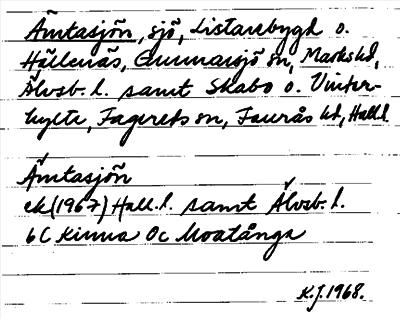 Ämtasjön, sjö, Listarebygd o.
Hällenäs, Gunnarsjö sn, Marks hd,
Älvsb. l. samt Skabo o. Vinter-
hylte, Fagereds sn, Faurås hd, Hall. l.
Ämtasjön
ek (1967) Hall. l. samt Älvsb. l.
6 C Kinna Oc Moatånga
K.J. 1968.